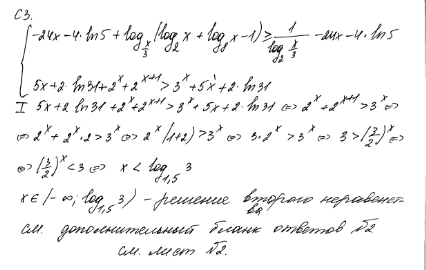 С3.
{ -24x-4·ln5 + log_{x/3}(log_2 x + log_8 x - 1) ≥ 1/(log_2 x/3) - 24x-4·ln5
5x+2·ln31+2^x+2^{x+1}>3^x+5x+2·ln31
I 5x+2ln31+2^x+2^{x+1}>3^x+5x+2·ln31 ⇔ 2^x+2^{x+1}>3^x ⇔
⇔ 2^x+2^x·2>3^x ⇔ 2^x(1+2)>3^x ⇔ 3·2^x>3^x ⇔ 3>(3/2)^x ⇔
⇔ (3/2)^x<3 ⇔ x<log_{1,5} 3
x∈(-∞; log_{1,5} 3) - решение второго неравенст-
ва
см. дополнительный бланк ответов №2
см. лист №2.